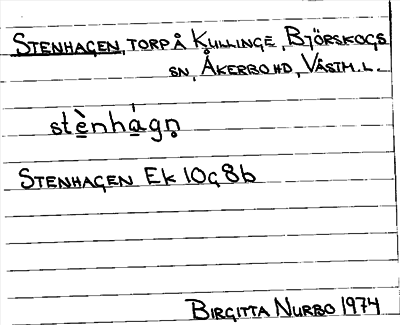 STENHAGEN, TORP Å KULLINGE, BJÖRSKOGS
SN, ÅKERBO HD, VÄSTM. L.
stè̲nhá̲gn̥
STENHAGEN Ek 10G 8b
BIRGITTA NURBO 1974